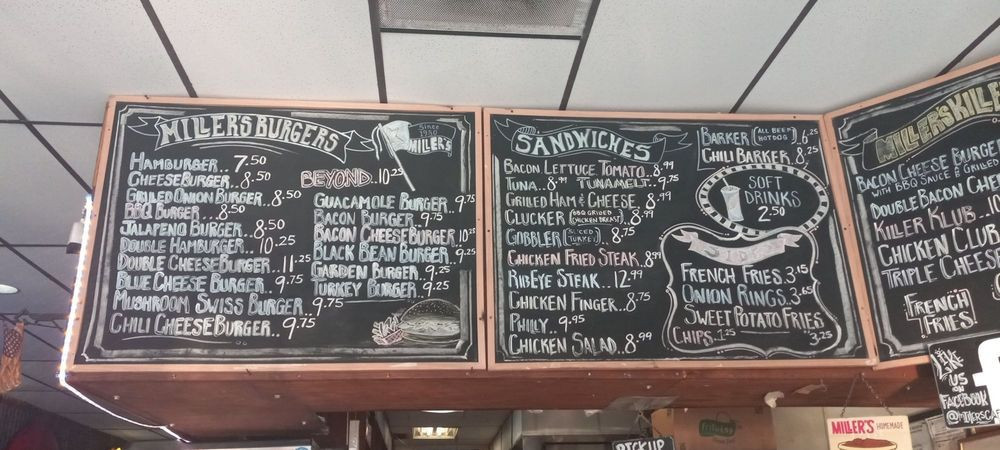 MILLER'S BURGERS
Since 1950
MILLER'S
HAMBURGER.. 7.50
CHEESEBURGER.. 8.50
GRILLED ONION BURGER.. 8.50
BBQ BURGER.. 8.50
JALAPENO BURGER.. 8.50
DOUBLE HAMBURGER.. 10.25
DOUBLE CHEESEBURGER.. 11.25
BLUE CHEESE BURGER.. 9.75
MUSHROOM SWISS BURGER.. 9.75
CHILI CHEESEBURGER.. 9.75
BEYOND.. 10.25
GUACAMOLE BURGER.. 9.75
BACON BURGER.. 9.75
BACON CHEESEBURGER.. 10.25
BLACK BEAN BURGER.. 9.25
GARDEN BURGER.. 9.25
TURKEY BURGER.. 9.25
SANDWICHES
BACON LETTUCE TOMATO.. 8.99
TUNA.. 8.99 TUNA MELT.. 9.75
GRILLED HAM & CHEESE.. 8.99
CLUCKER (BBQ GRILLED CHICKEN BREAST) 8.99
GOBBLER (SLICED TURKEY) 8.75
CHICKEN FRIED STEAK.. 8.99
RIBEYE STEAK.. 12.99
CHICKEN FINGER.. 8.75
PHILLY.. 9.95
CHICKEN SALAD.. 8.99
BARKER (ALL BEEF HOTDOG) 6.25
CHILI BARKER.. 8.25
SOFT DRINKS
2.50
SIDES
FRENCH FRIES.. 3.15
ONION RINGS.. 3.65
SWEET POTATO FRIES
CHIPS.. 1.25 ..3.25
MILLER'S KILLE
BACON CHEESE BURGE
WITH BBQ SAUCE & GRILLED
DOUBLE BACON
KILLER KLUB..
CHICKEN CLUB
TRIPLE CHEESE
FRENCH FRIES
LIKE
US
ON
FACEBOOK
PICKUP
MILLER'S HOMEMADE